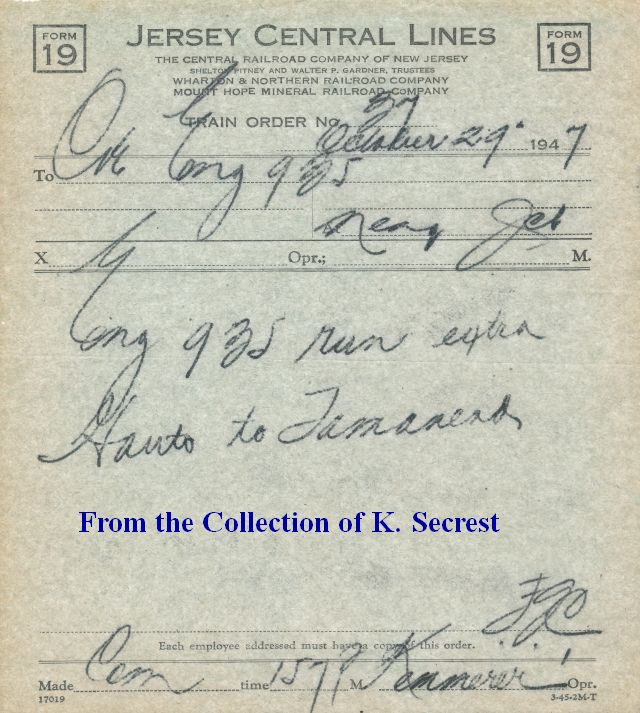 FORM 19
JERSEY CENTRAL LINES
FORM 19
THE CENTRAL RAILROAD COMPANY OF NEW JERSEY
SHELTON PITNEY AND WALTER P. GARDNER, TRUSTEES
WHARTON & NORTHERN RAILROAD COMPANY
MOUNT HOPE MINERAL RAILROAD COMPANY
TRAIN ORDER No. 37
October 29 1947
To C&E Eng 935
Jct
X Opr.; M.
Eng 935 run extra
Hauto to Tamanend
From the Collection of K. Secrest
Each employee addressed must have a copy of this order.
Made Com time 157 P M. Kemmerer Opr.
17019 3-45-2M-T